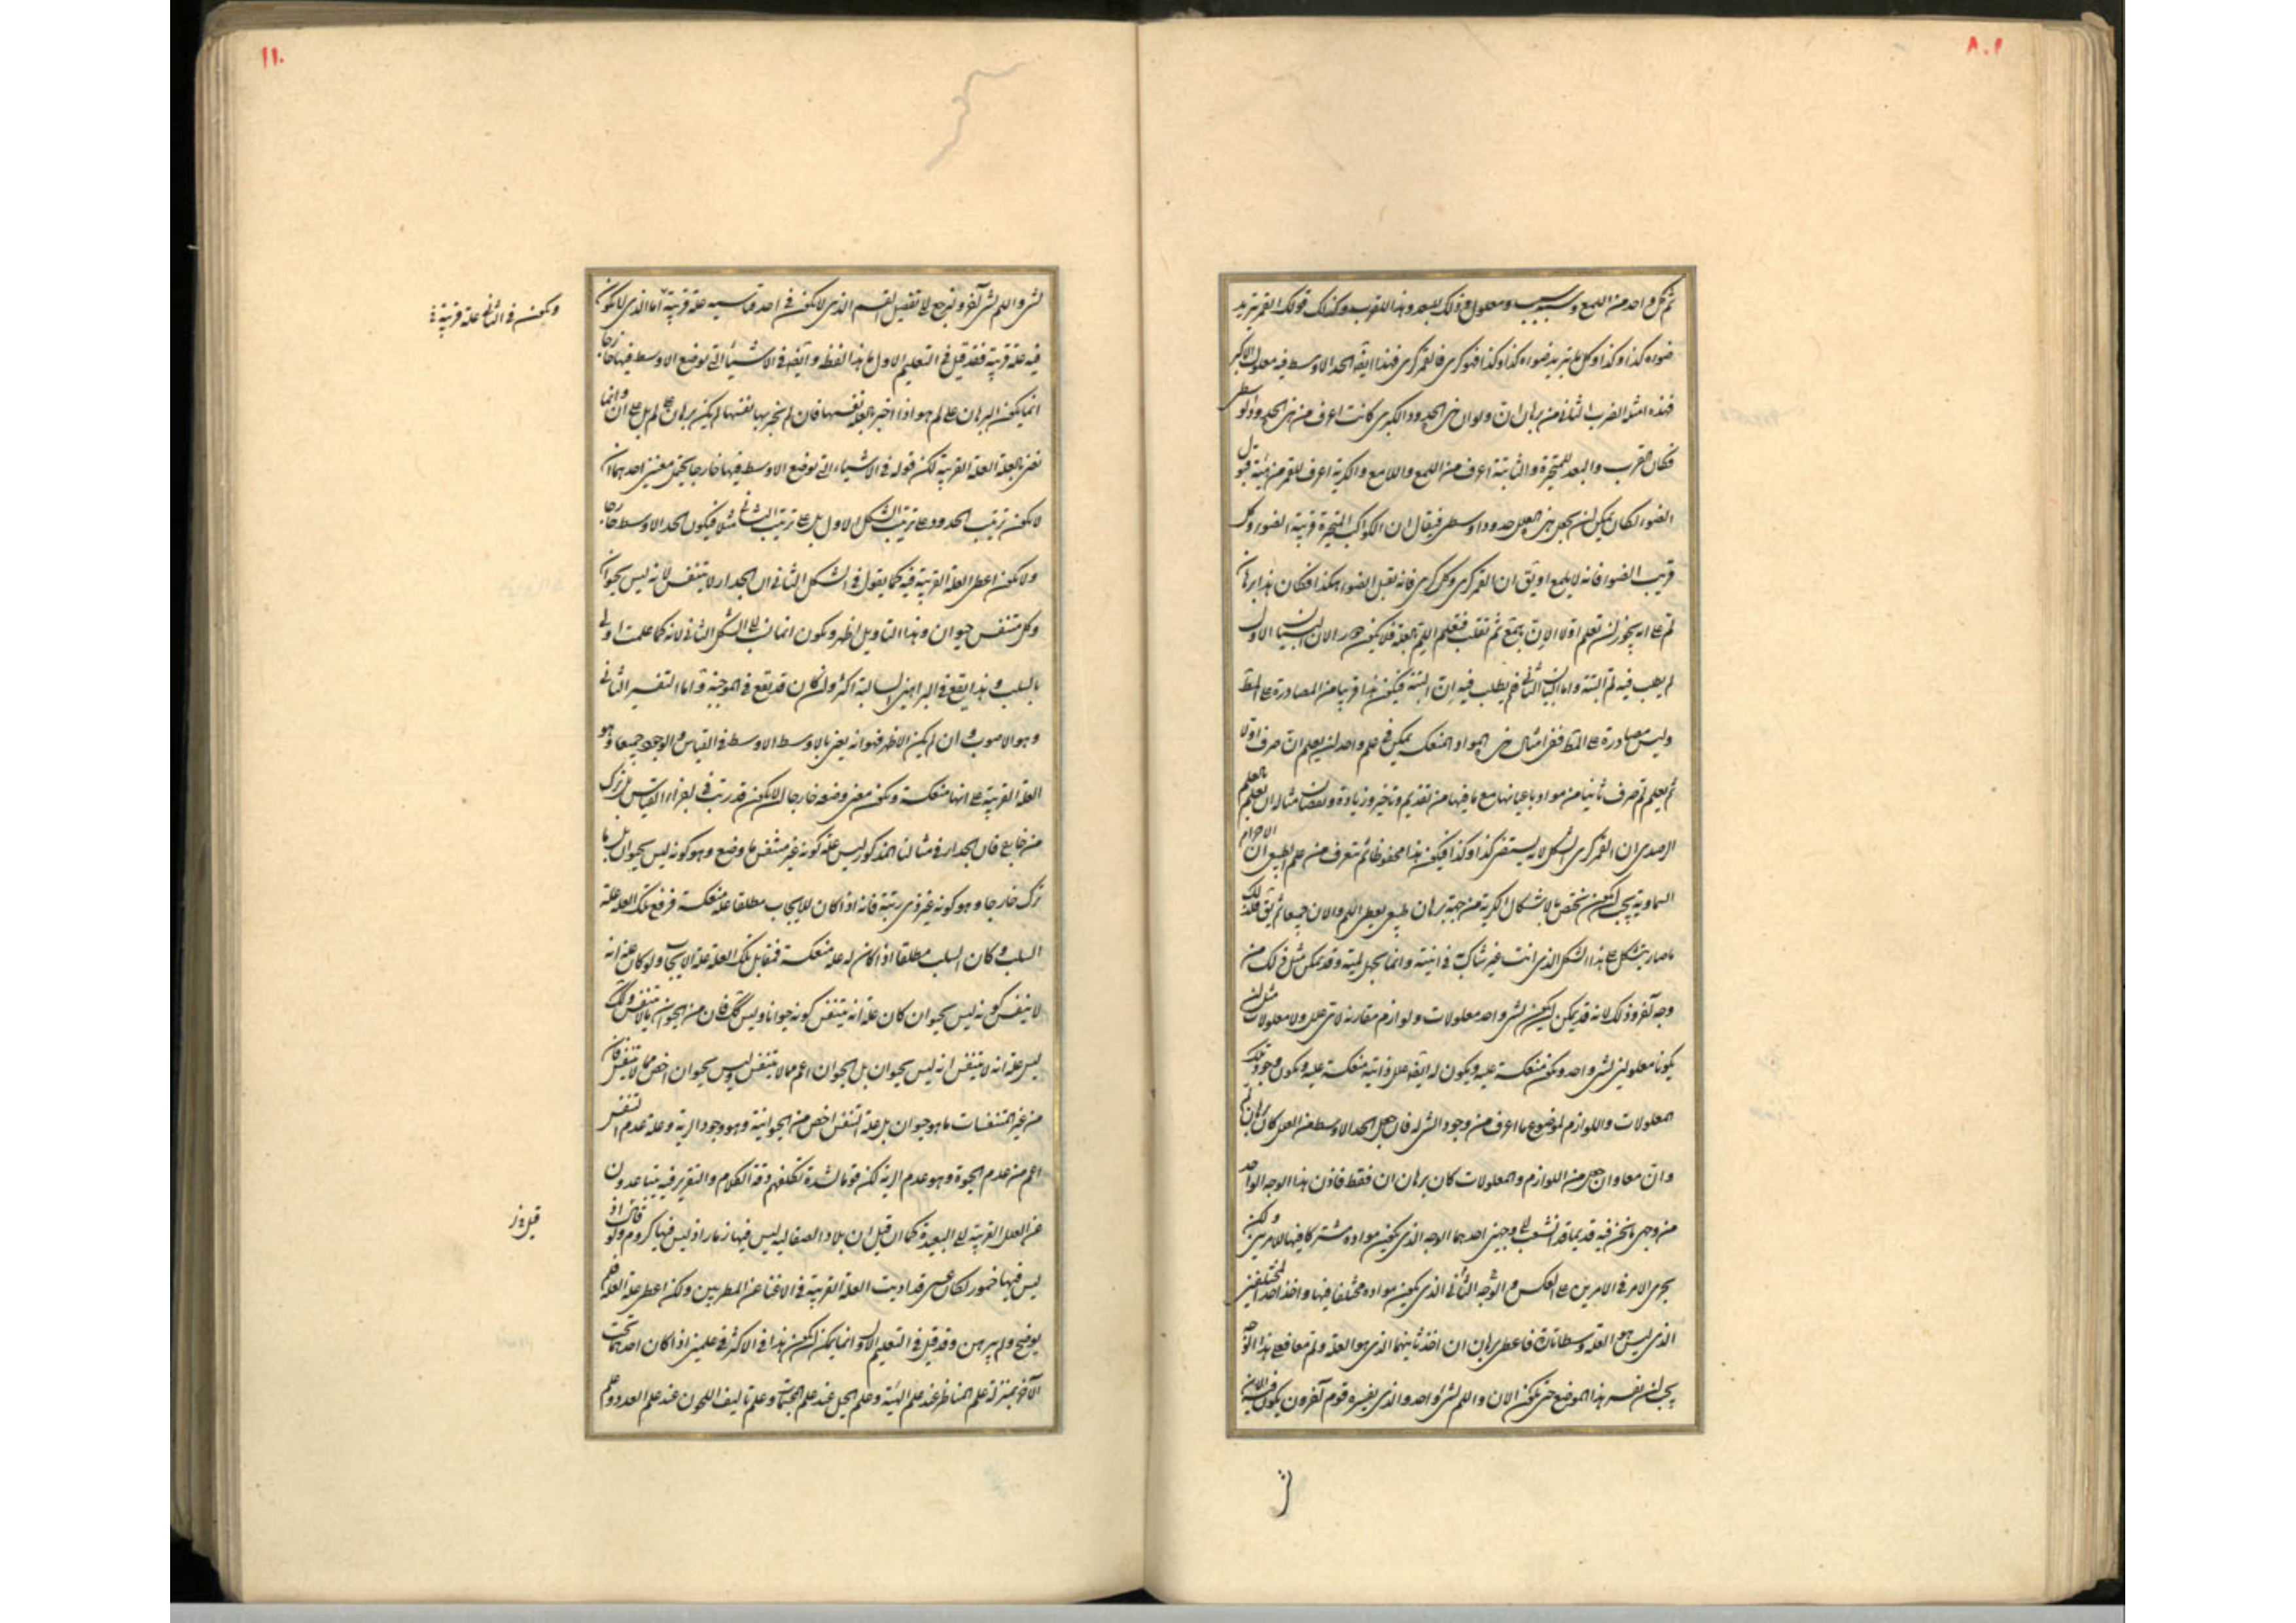 ٨٠١
ثم كل واحد من اللمع وسبب ومعلول وذلك للبعد وهذا للقرب وكذلك قولك القمر يتزيد
ضوءه كذا وكذا وكل ما يتزيد ضوءه كذا وكذا فهو كرى فالقمر كرى فهذا ايضا الحد الاوسط فيه معلول الاكبر
فهذه امثلة الضرب الثانى من برهان ان ولو ان هذه الحدود الكبرى كانت اعرف من هذه الحدود الوسطى
فكان القرب والبعد للمتحيرة والثابتة اعرف من اللمع واللامع والكرية اعرف للقمر من هيئة قبول
الضوء لكان يمكن ان يجعل هذه العلل حدودا وسطى فيقال ان الكواكب المتحيرة قريبة الضوء وكل
قريب الضوء فانه لا يلمع او يق ان القمر كرى وكل كرى فانه يقبل الضوء هكذا فكان هذا برهان
لم على انه يجوز ان تعلم اولا الان بجمع ثم تقلب فتعلم اللم بالعلة فلا يكون دور الان البيان الاول
لم يطلب فيه لم البتة واما البيان الثانى فلم يطلب فيه ان البتة فيكون هذا قريبا من المصادرة على المط
وليس مصادرة على المط ففى امثال هذه المواد المنعكسة يمكن فى علم واحد ان يعلم ان صرف اولا
ثم يعلم لم صرف ثانيا من مواد باعيانها مع ما فيها من تقديم وتاخير وزيادة ونقصان مثاله ان تعلم بالعلم
الرصدى ان القمر كرى الشكل لانه يستضئ كذا وكذا فيكون هذا محفوظا ثم تعرف من علم الطبيعى ان الاجرام
السماوية يجب ان يكون تختص بالاشكال الكرية من جهة برهان طبيعى يعطى اللم والان جميعا ثم يق فلذلك
ما صار يتشكل على هذا الشكل الذى انت غير شاك فى انيته وانما يجهل لميته وقد يمكن مثل ذلك من
وجه آخر وذلك لانه قد يمكن ان يكون لشئ واحد معلولات ولوازم مقارنة لا هى علل ولا معلولات مثل ان
يكونا معلولين لشئ واحد ويكون منعكسة عليه ويكون له ايضا علل ذاتية منعكسة عليه ويكون وجود تلك
المعلولات واللوازم لموضوع ما اعرف من وجود الشئ له فان جعل الحد الاوسط من العلل كان برهان لم
وان معا وان جعل من اللوازم والمعلولات كان برهان ان فقط فاذن هذا الوجه الواحد
من وجهى ما نحن فيه قد يمايزه قد انشعب الى وجهين احدهما الوجه الذى يكون مواده مشتركا فيها للامرين ولكن
يجرى الامر فى الامرين على العكس والوجه الثانى الذى يكون مواده مختلفا فيها واخذ احد المختلفين
الذى ليس هو العلة وسطا تارة فاعطى برهان ان اخذ ثانيهما الذى هو العلة ولم معا فعلى هذا الوجه
يجب ان نفسر هذا الموضع حتى يكون الان واللم لشئ واحد والذى يفسره قوم آخرون يكون فيه الان
١١٠
لشئ واللم لشئ آخر ونرجع الى تفصيل القسم الذى لا يكون فى احد قياسيه علة قريبة اما الذى لا يكون
ويكون فى الثانى علة قريبة
فيه علة قريبة فقد قيل فى التعليم الاول على هذا اللفظ وايضا فى الاشياء التى يوضع الاوسط فيها خارجا
انما يكون البرهان على لم هو اذا اخبر بالعلة نفسها فان لم يخبر بها نفسها لم يكن برهان على لم بل على ان وانما
نعنى بالعلة العلة القريبة لكن قوله فى الاشياء التى يوضع الاوسط فيها خارجا يحتمل معنيين احدهما ان
لا يكون ترتيب الحدود على ترتيب الشكل الاول بل على ترتيب الثانى مثلا فيكون الحد الاوسط خارجا
ولا يكون اعطى العلة القريبة فيه كما يقول فى الشكل الثانى ان الجدار لا يتنفس لانه ليس بحيوان
وكل متنفس حيوان وهذا التاويل اظهر ويكون انما نسب الى الشكل الثانى لانه كما علمت اولى
بالسلب وهذا يقع فى البراهين السالبة اكثر وان كان قد يقع فى الموجبة واما التفسير الثانى
وهو الاصوب وان لم يكن الاظهر فهو انه يعنى بالاوسط الاوسط فى القياس والوجود جميعا وهو
العلة القريبة على انها منعكسة ويكون معنى وضعه خارجا ان لا يكون قد رتب فى اجزاء القياس بل ترك
من خارج فان الجدار فى مثالنا المذكور ليس علة كونه غير متنفس ما وضع وهو كونه ليس بحيوان بل ما
ترك خارجا وهو كونه غير ذى رئة فانه اذا كان للايجاب مطلقا علة منعكسة فرفع تلك العلة علة
السلب وكان السلب مطلقا اذا كان له علة منعكسة فمقابل تلك العلة علة الايجاب ولو كان علة انه
لا يتنفس كونه ليس بحيوان كان علة انه يتنفس كونه حيوانا وليس كذلك فان من الحيوان ما لا يتنفس وكذلك
ليس علة انه لا يتنفس انه ليس بحيوان بل الحيوان اعم مما لا يتنفس وليس بحيوان اخص مما لا يتنفس فان
من غير المتنفسات ما هو حيوان بل علة التنفس اخص من الحيوانية وهو وجود الرية وعلة عدم التنفس
اعم من عدم الحيوة وهو عدم الرية لكن قوما لشدة تكلفهم دقة الكلام والتقرير فيه يتباعدون
عن العلل القريبة الى البعيدة كما ان قيل ان بلاد الصقالبه ليس فيها زمار اذ ليس فيها كروم ولو قال اذ
قيل وز
ليس فيها خمور لكان عسى قد اديت العلة القريبة فى الاغنا عن المطربين ولكن اعطى علة العلة فلم
يوضح ولم يبرهن وقد قيل فى التعليم الاول وانما يمكن ان يكون هذا فى الاكثر فى علمين اذا كان احدهما تحت
الآخر بمنزلة علم المناظر عند علم الهيئة وعلم الحيل عند علم المجسمات وعلم تاليف اللحون عند علم العدد وعلم